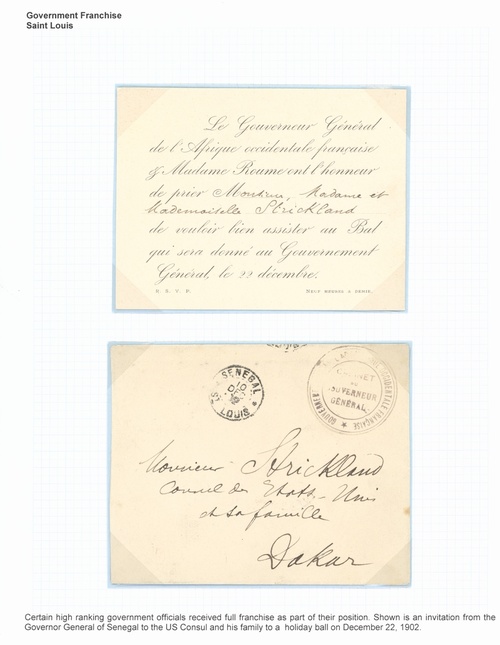 Government Franchise
Saint Louis
Le Gouverneur Général
de l'Afrique occidentale française
& Madame Roume ont l'honneur
de prier Monsieur, Madame et
Mademoiselle Strickland
de vouloir bien assister au Bal
qui sera donné au Gouvernement
Général, le 22 décembre.
R. S. V. P.
Neuf heures & demie.
SENEGAL
ST LOUIS
CABINET
DU
GOUVERNEUR
GÉNÉRAL
OCCIDENTALE FRANÇAISE
Monsieur Strickland
Consul des Etats-Unis
et sa famille
Dakar
Certain high ranking government officials received full franchise as part of their position. Shown is an invitation from the
Governor General of Senegal to the US Consul and his family to a holiday ball on December 22, 1902.